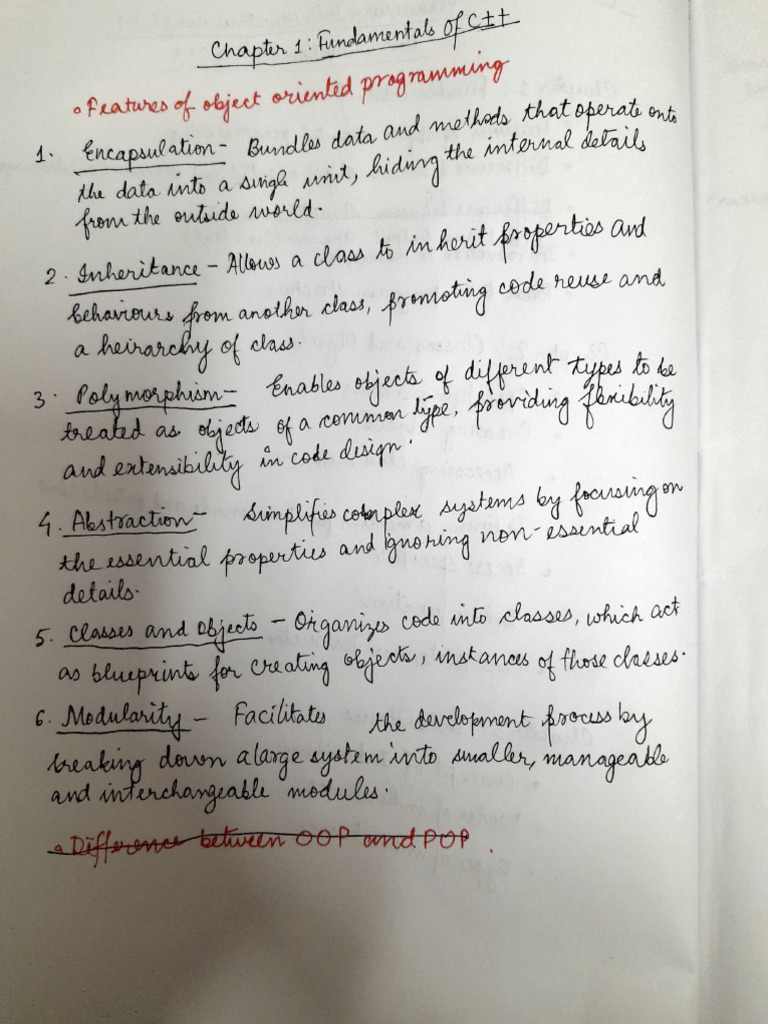 Chapter 1: Fundamentals of C++
• Features of object oriented programming
1. Encapsulation - Bundles data and methods that operate onto
the data into a single unit, hiding the internal details
from the outside world.
2. Inheritance - Allows a class to inherit properties and
behaviours from another class, promoting code reuse and
a heirarchy of class.
3. Polymorphism - Enables objects of different types to be
treated as objects of a common type, providing flexibility
and extensibility in code design.
4. Abstraction - Simplifies complex systems by focusing on
the essential properties and ignoring non-essential
details.
5. Classes and Objects - Organizes code into classes, which act
as blueprints for creating objects, instances of those classes.
6. Modularity - Facilitates the development process by
breaking down a large system into smaller, manageable
and interchangeable modules.
• Difference between OOP and POP.